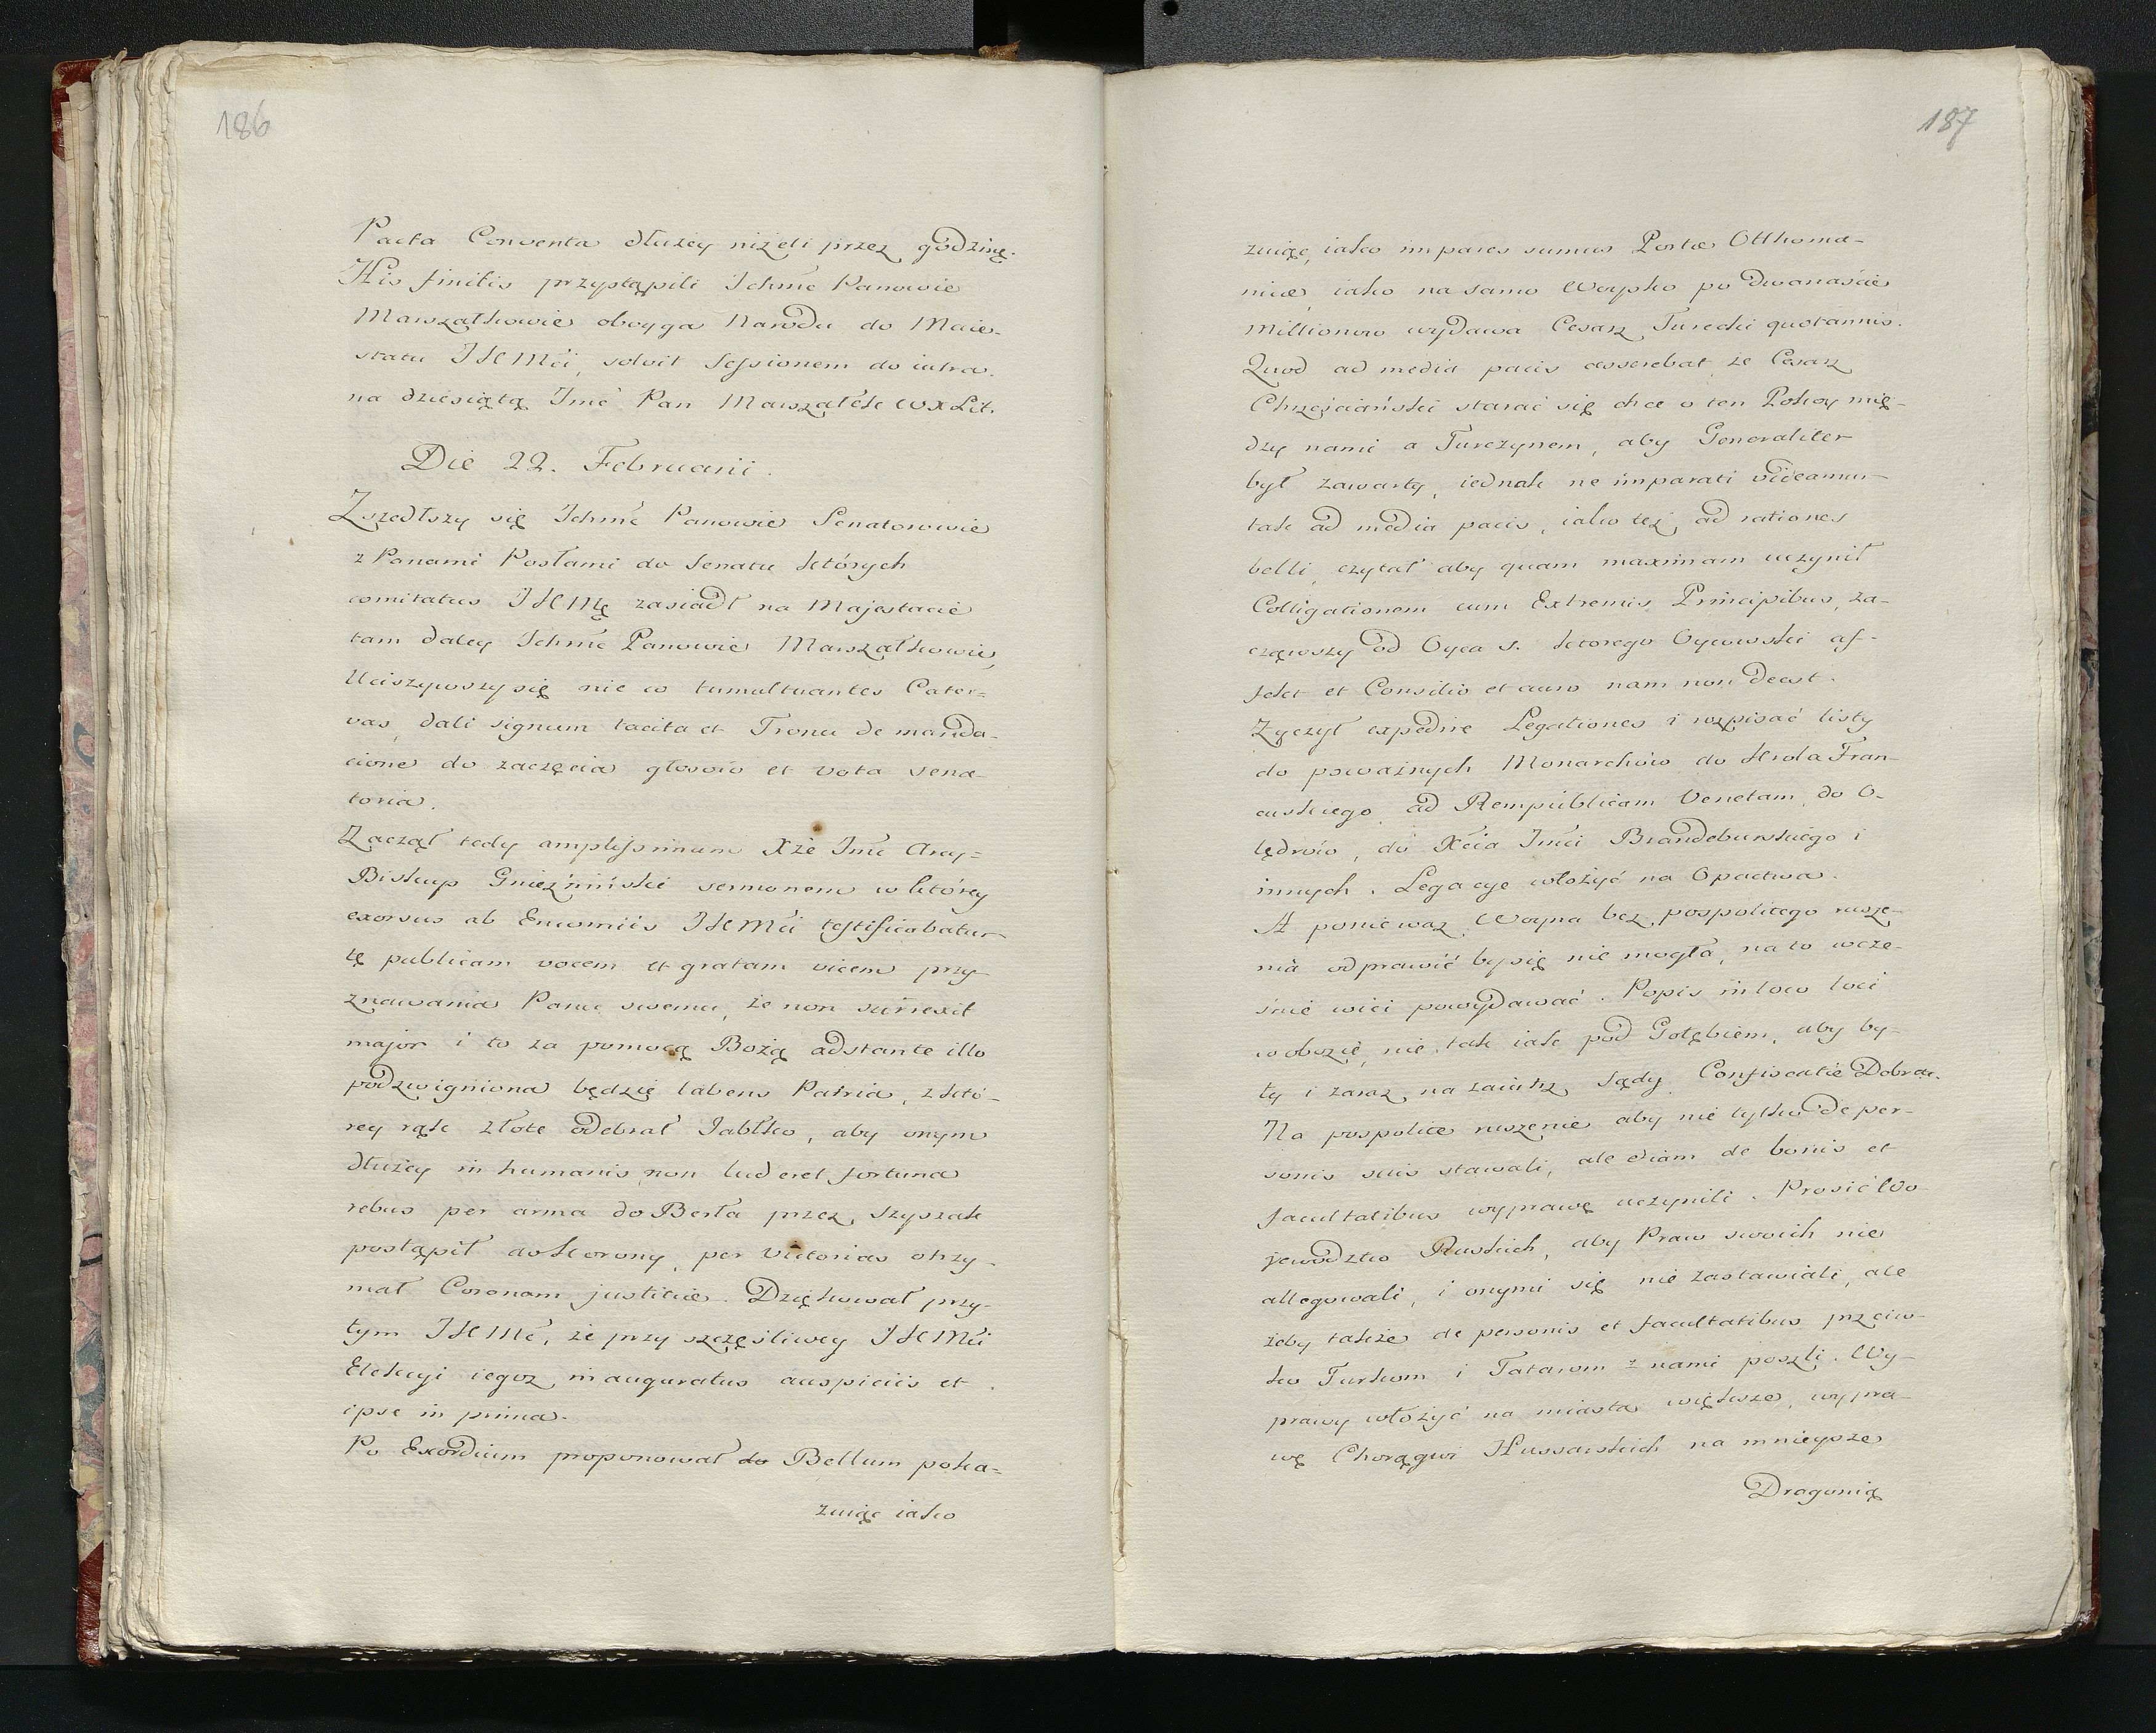 186
Pacta Conventa dłużey niżeli przez godzinę.
His finitis przystąpili Ichmć Panowie
Marszałkowie oboyga Narodu do Maie-
statu JKMci, solvit Sessionem do iutra
na dziesiątą Jmć Pan Marszałek WXLit.
Die 22. Februarii.
Zszedłszy się Ichmć Panowie Senatorowie
z Panami Posłami do Senatu których
comitatus JKMć zasiadł na Majestacie
tam daley Ichmć Panowie Marszałkowie,
Uciszywszy się nieco tumultuantes Cater=
vas, dali signum tacita et Tronu de manda-
cione do zaczęcia głosów et vota sena-
toria.
Zaczął tedy amplissimum Xże Jmć Arcy=
Biskup Gnieźniński sermonem w którey
exorsus ab Encomiis JKMci testificabatur
tę publicam vocem et gratam vicem przy-
znawania Panu swemu, że non surrexit
major i to za pomocą Bożą adstante illo
podzwigniona będzie labens Patria, z któ-
rey rąk złote odebrał Jabłko, aby onym
dłużey in humanis non luderet fortuna
rebus per arma do Berła przez Szyszak
postąpił do Korony, per victorias otrzy-
mał Coronam justitiæ. Dziękował przy-
tym JKMć, że przy szczęśliwey JKMci
Elekcyi iegoż inauguratus auspiciis et
ipse in prima.
Po Exordium proponował do Bellum poka-
zuiąc iako
187
zuiąc, iako impares sumus Portæ Otthoma-
nicæ, iako na samo Woysko po dwanaście
Millionów wydawa Cesarz Turecki quotannis.
Quod ad media pacis asserebat, że Cesarz
Chrześciański starać się chce o ten Pokoy mię-
dzy nami a Turczynem, aby Generaliter
był zawarty, iednak ne imparati videamur
tak ad media pacis, iako też ad rationes
belli, czytał aby quam maximam uczynił
Colligationem cum Extremis Principibus, za-
cząwszy od Oyca S. ktorego Oycowski af-
fekt et Consilio et auro nam non deest.
Zyczył expedire Legationes i rozpisać listy
do poważnych Monarchów do Krola Fran-
cuskiego, ad Rempublicam Venetam, do O-
lędrów, do Xcia Jmci Brandeburskiego i
innych. Legacye włożyć na Opactwa.
A ponieważ Woyna bez pospolitego rusze-
nia odprawić by się nie mogła, na to wcze-
śnie wici powydawać. Popis in loco loci
w obozie, nie tak iak pod Gołębiem, aby by-
ły i zaraz na zaiutrz Sądy Confiscatie Dobrae.
Na pospolite ruszenie aby nie tylko de per-
sonis suis stawali, ale etiam de bonis et
facultatibus wyprawę uczynili. Prosić Wo-
jewodztw Ruskich, aby Praw swoich nie
allegowali, i onymi się nie zastawiali, ale
żeby także de personis et facultatibus przeciw-
ko Turkom i Tatarom z nami poszli. Wy-
prawy włożyć na miasta większe, wypra-
wę Chorągwi Hussarskich na mnieysze
Dragonią